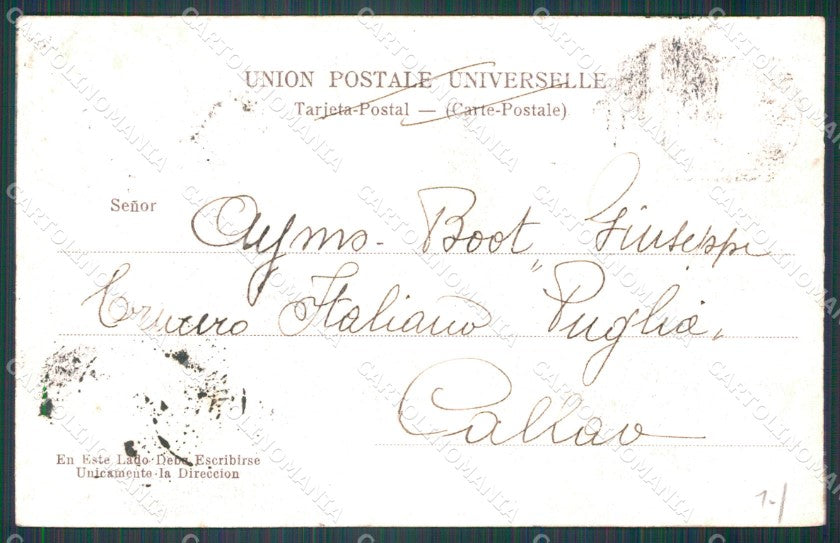 UNION POSTALE UNIVERSELLE
Tarjeta-Postal — (Carte-Postale)
Señor
Boot Giuseppe
Crucero Italiano "Puglia"
Callao
En Este Lado Debe Escribirse
Unicamente la Direccion
1-/
CARTOLINOMANIA